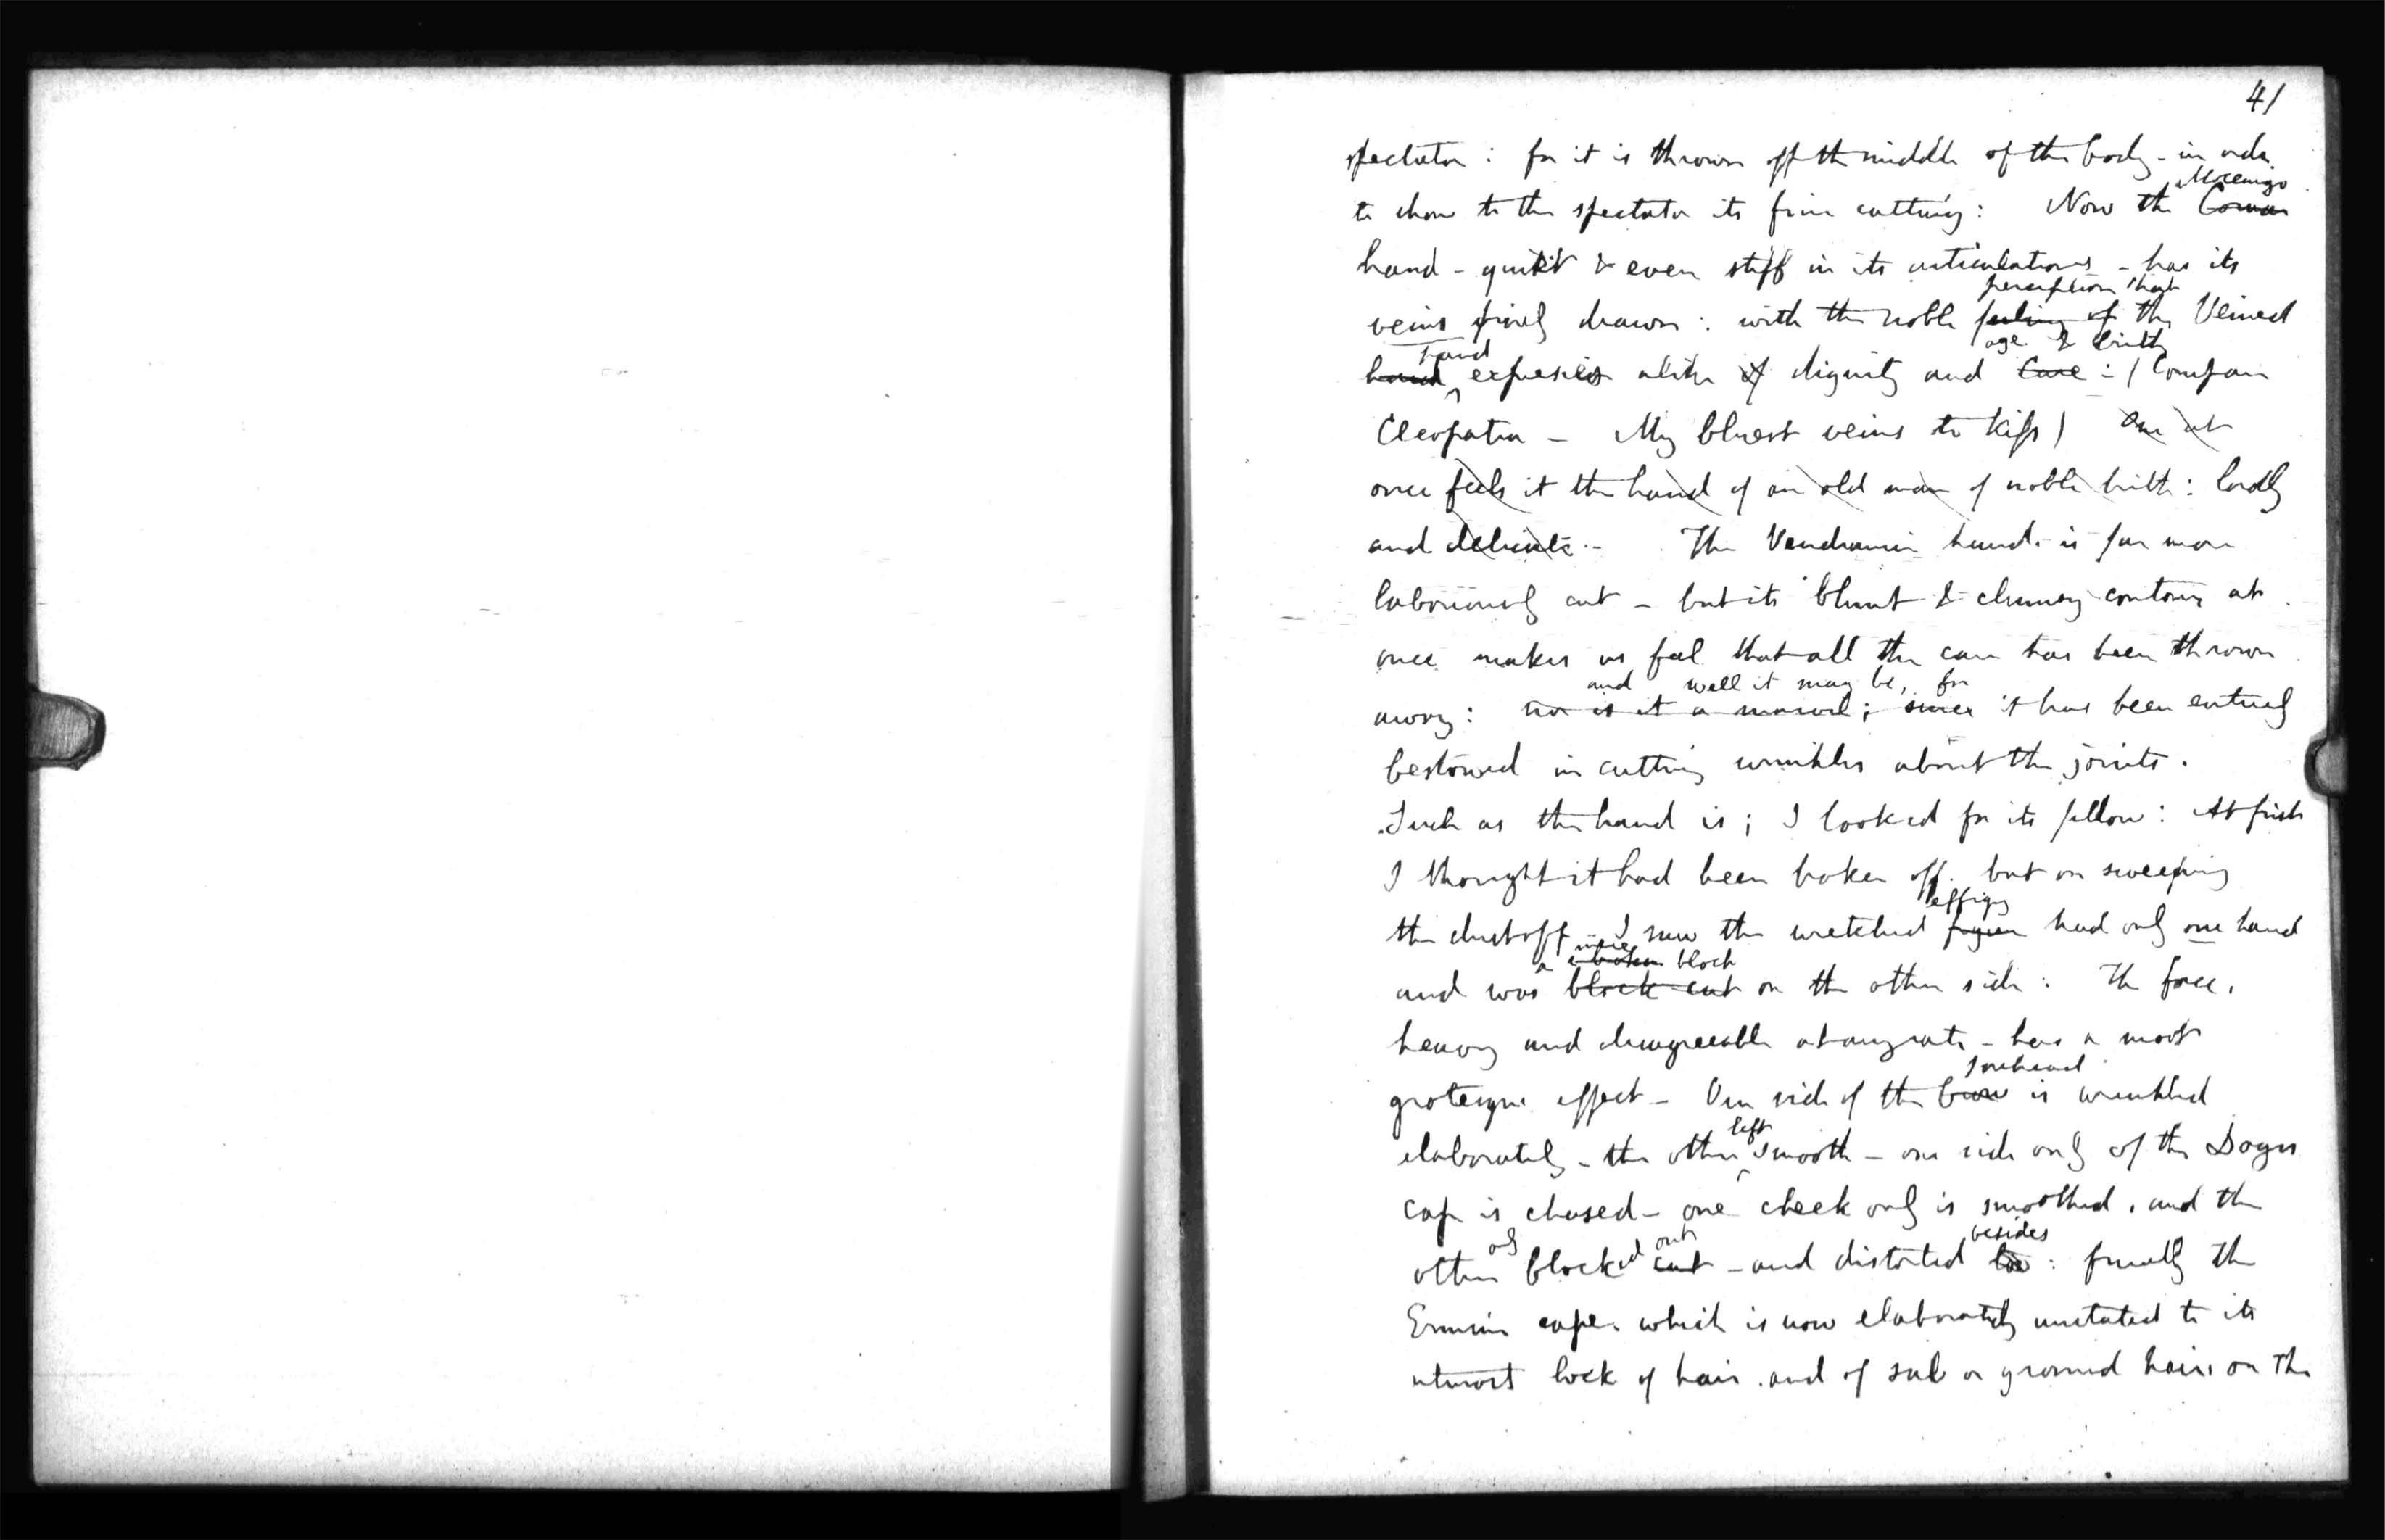 41
spectator : for it is thrown off the middle of the body - in order
Mocenigo
to show to the spectator its fine cutting : Now the Corner
hand - quiet & even stiff in its articulations - has its
perception that
veins finely drawn : with the noble feeling of the Veined
hand age & birth
hand expresses alike of dignity and Care : (Compare
Cleopatra - My bluest veins to kiss) One at
once feels it the hand of an old man of noble birth : lordly
and delicate. - The Vendramin hand is far more
laboriously cut - but its blunt & clumsy contour at
once makes us feel that all the care has been thrown
and well it may be, for
away : nor is it a marvel ; since it has been entirely
bestowed in cutting wrinkles about the joints.
Such as the hand is ; I looked for its fellow : At first
I thought it had been broken off. but on sweeping
effigy
the dust off - I saw the wretched figure had only one hand
a mere block
and was block cut on the other side : The face,
heavy and disagreeable at any rate - has a most
forehead
grotesque effect - One side of the brow is wrinkled
left
elaborately - the other smooth - one side only of the Doges
cap is chased - one cheek only is smoothed, and the
only out besides
other blocked cut - and distorted too : finally the
Ermine cape. which is now elaborately imitated to its
utmost lock of hair. and of sub or ground hair, on the